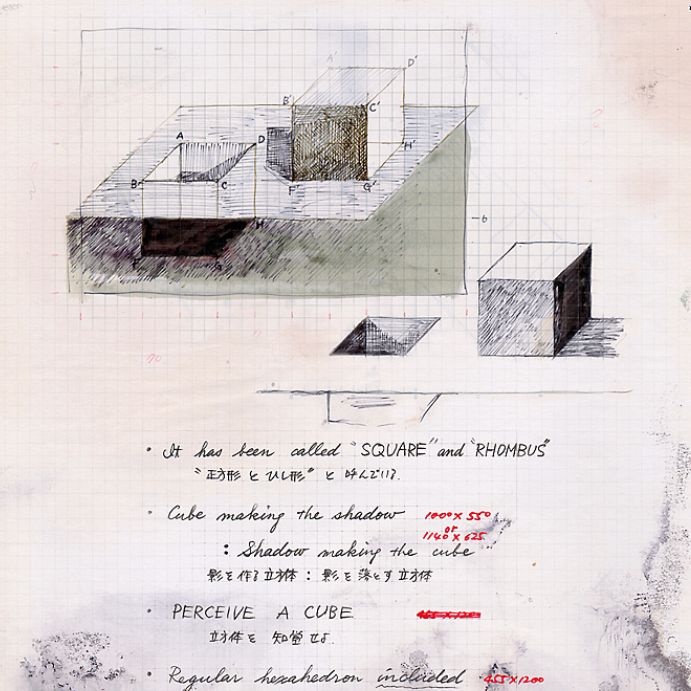 A' D'
B' C'
A D
H'
B C F' G'
6
H
• It has been called "SQUARE" and "RHOMBUS"
"正方形 と ひし形" と 呼んでいる.
• Cube making the shadow 1000 x 550
or
1140 x 625
: Shadow making the cube
影を作る立方体 : 影を落とす立方体
• PERCEIVE A CUBE
立方体を 知覚せよ.
• Regular hexahedron included 455 x 1200